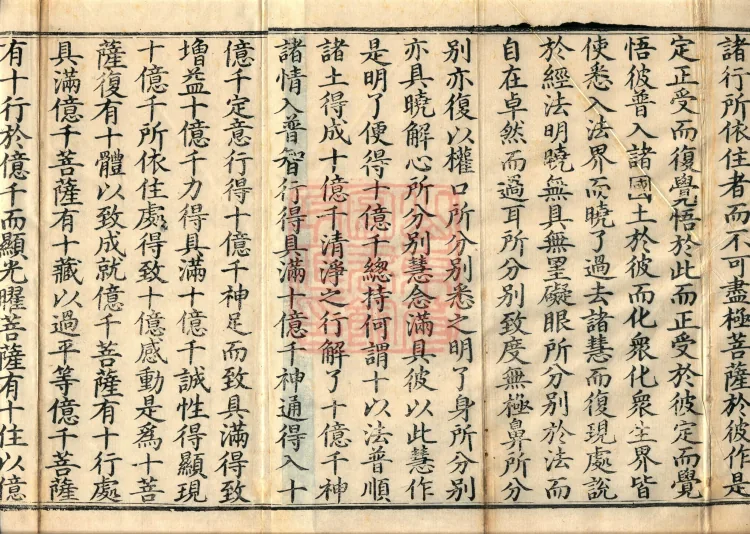 諸行所依住者而不可盡極菩薩於彼作是
定正受而復覺悟於此而正受於彼定而覺
悟彼普入諸國土於彼而化衆化衆生界皆
使悉入法界而曉了過去諸慧而復現處說
於經法明曉無具無罣礙眼所分別於法而
自在卓然而過耳所分別致度無極鼻所分
別亦復以權口所分別悉之明了身所分別
亦具曉解心所分別慧念滿具彼以此慧作
是明了便得十億千總持何謂十以法普順
諸土得成十億千清淨之行解了十億千神
諸情入普智行得具滿十億千神通得入十
億千定意行得十億千神足而致具滿得致
增益十億千力得具滿十億千誠性得顯現
十億千所依住處得致十億感動是爲十菩
薩復有十體以致成就億千菩薩有十行處
具滿億千菩薩有十藏以過平等億千菩薩
有十行於億千而顯光曜菩薩有十住以億